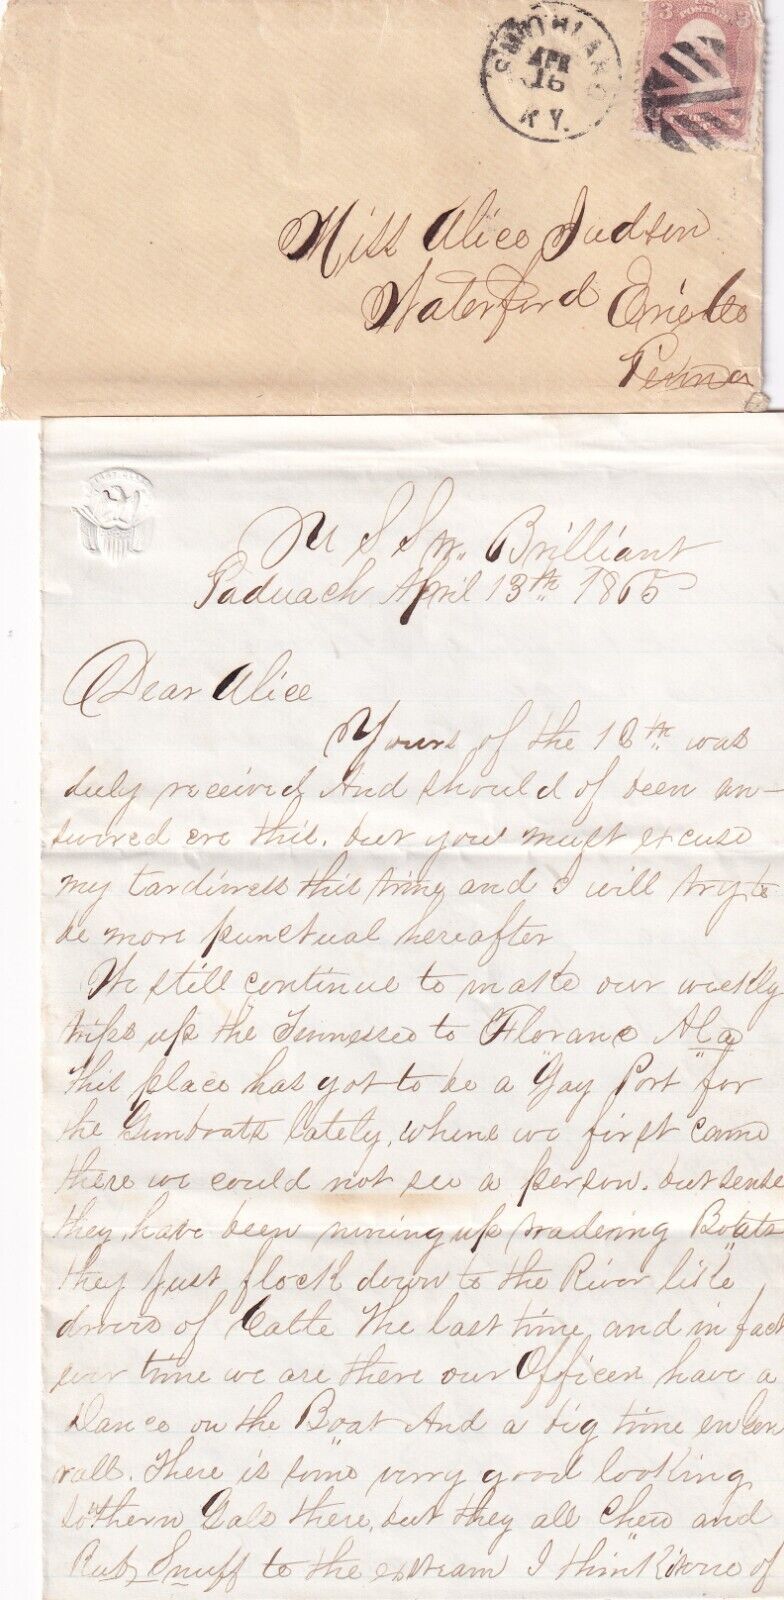 SMITHLAND
APR
16
KY.
3 POSTAGE 3
Miss Alice Judson
Waterford Erie Co
Penna
U S S Str. Brilliant
Paduach April 13th 1865
Dear Alice
Yours of the 18th was
duly received And should of been an-
swored ere this. but you must excuse
my tardiness this time and I will try to
be more punctual hereafter
We still continue to make our weekly
trips up the Tennessee to Floranc Ala
this place has got to be a "Gay Port" for
the Gunboats lately, where we first came
there we could not see a person. but sense
they have been runing up tradering Boats
they just flock down to the River like
drovs of Catle The last time and in fact
ever time we are there our Officers have a
Dance on the Boat And a big time in
rall. There is some verry good looking
Sothern Gals there, but they all Chew and
Rub Snuff to the extream I think